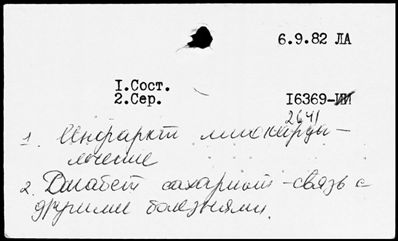 6.9.82 ЛА
I.Сост.
2.Сер.
I6369-
2641
1. Инфаркт миокарда -
лечение
2. Диабет сахарный - связь с
другими болезнями.